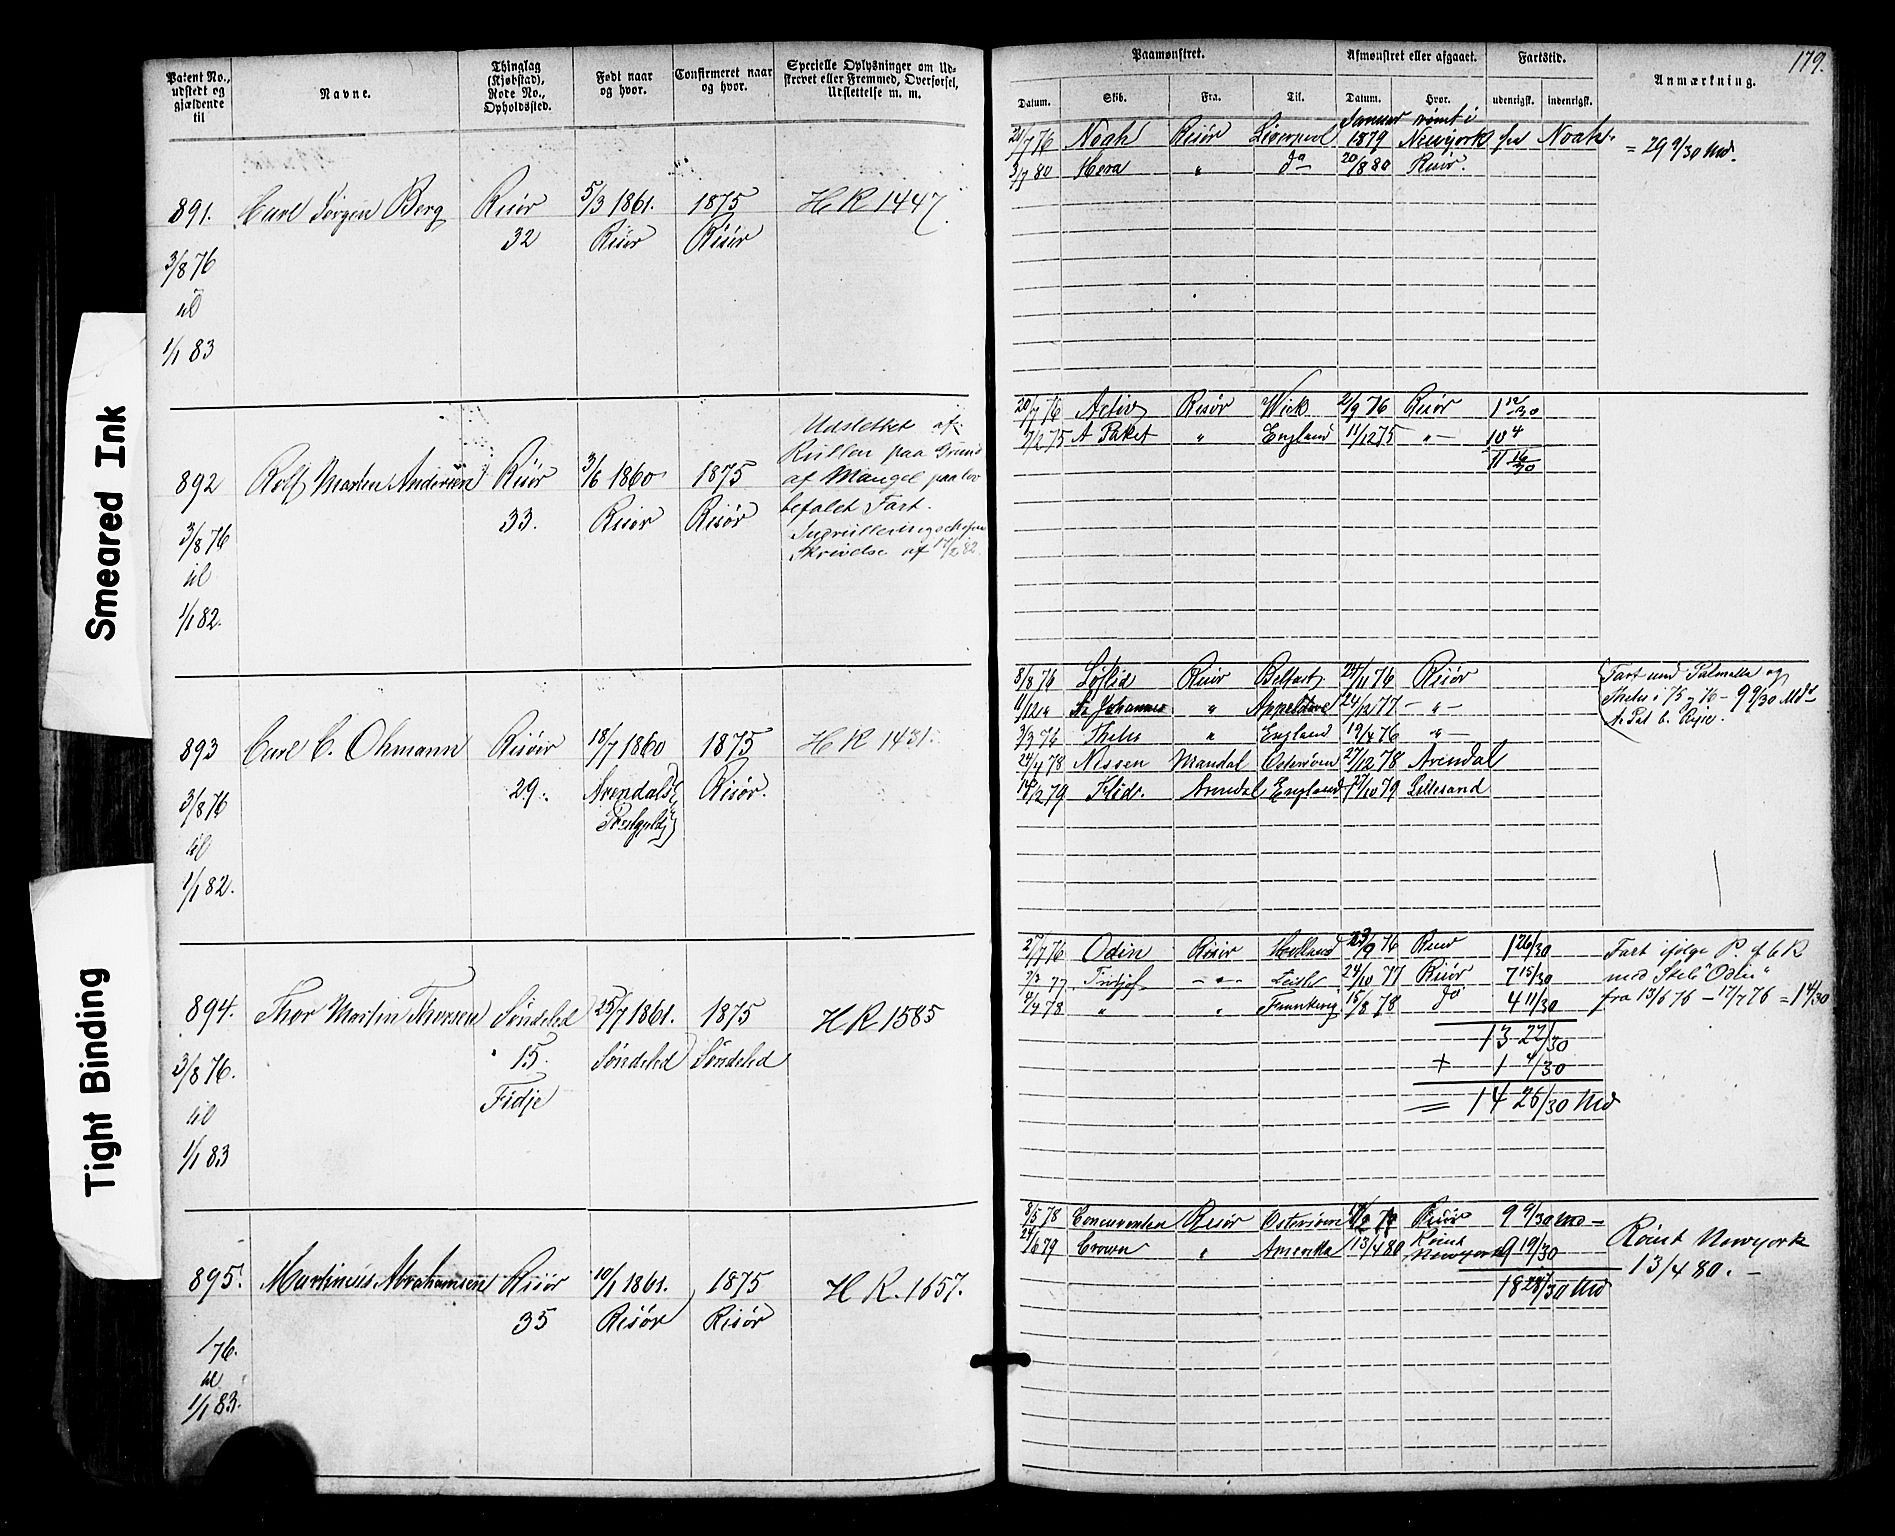 179.
Patent No., udstedt og gjældende til
Navne.
Thinglag (Kjøbstad), Rode No., Opholdssted.
Født naar og hvor.
Confirmeret naar og hvor.
Specielle Oplysninger om Udskrevet eller Fremmed, Overførsel, Udslettelse m. m.
Paamønstret.
Afmønstret eller afgaaet.
Fartstid.
Anmærkning.
Datum. Skib. Fra. Til. Datum. Hvor. udenrigsk. indenrigsk.
891. Carl Jørgen Berg Risør 5/3 1861. 1875 H R 1447
32 Risør Risør
3/8 76
til
1/1 83
Januar rømt i
/7 76 Noah Risør Liverpool 1879 Newyork fra Noah. = 29 9/30 Md.
3/7 80 Hera " do 20/8 80 Risør.
892 Rolf Marten Andersen Risør 3/6 1860 1875
33. Risør Risør
3/8 76
til
1/1 82.
Udslettet af
Rullen paa Grund
af Mangel paa lov
befalet Fart.
Indrulleringschefens
Skrivelse af 17/2 82.
20/7 76 Activ Risør Wick 2/9 76 Risør 1 12/30
A Paket " England 11/12 75 " 10 4
11 16/30
893 Carl C. Ohmann Risør 18/7 1860 1875 H R 1431.
29. Arendals Risør.
Præstgjeld
3/8 76
til
1/1 82.
8/8 76 Løflid Risør Belfast 24/11 76 Risør
11/12 " Johannes " 24/12 77 "
3/3 76 Thetis " England 19/4 76 "
24/4 78 Nissen Mandal Østersøen 27/12 78 Arendal
14/2 79 Arendal England 27/10 79 Lillesand
Fart med Palmella og
Thetis i 75 og 76 - 9 9/30 Md
894. Thor Martin Thorsen Søndeled 25/7 1861. 1875 H R 1585
15. Søndeled Søndeled
Fidje
3/8 76.
til
1/1 83
25/7 76 Odin Risør Holland 23/9 76 Risør 1 26/30
77 " 24/10 77 Risør 7 15/30
4/4 78 " " 15/8 78 do 4 11/30
13 22/30
+ 1 4/30
= 14 26/30 Md
Fart ifølge P. f 6 R
med Skib "Odin"
fra 13/6 76 - 17/7 76 = 1 4/30
895. Martinius Abrahamsen Risør 10/1 1861. 1875 H R. 1657.
35 Risør Risør
/ 76.
til
1/1 83.
8/5 78 Concurenten Risør Østersøen Risør 9 9/30 Md
24/6 79 Crown " Amerika 13/4 80 Rømt Newyork 9 19/30
18 28/30 Md
Rømt Newyork
13/4 80.
Smeared Ink
Tight Binding